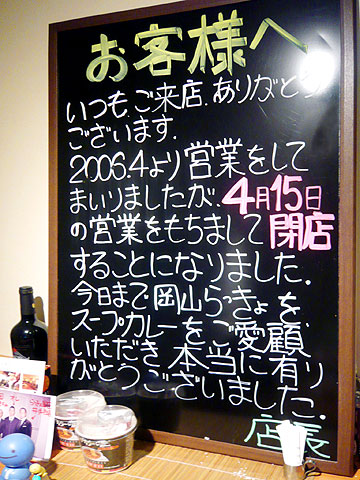 お客様へ
いつも、ご来店、ありがとう
ございます.
2006.4より営業をして
まいりましたが、4月15日
の営業をもちまして閉店
することになりました.
今日まで岡山らっきょを
スープカレーをご愛顧
いただき本当に有り
がとうございました.
店長